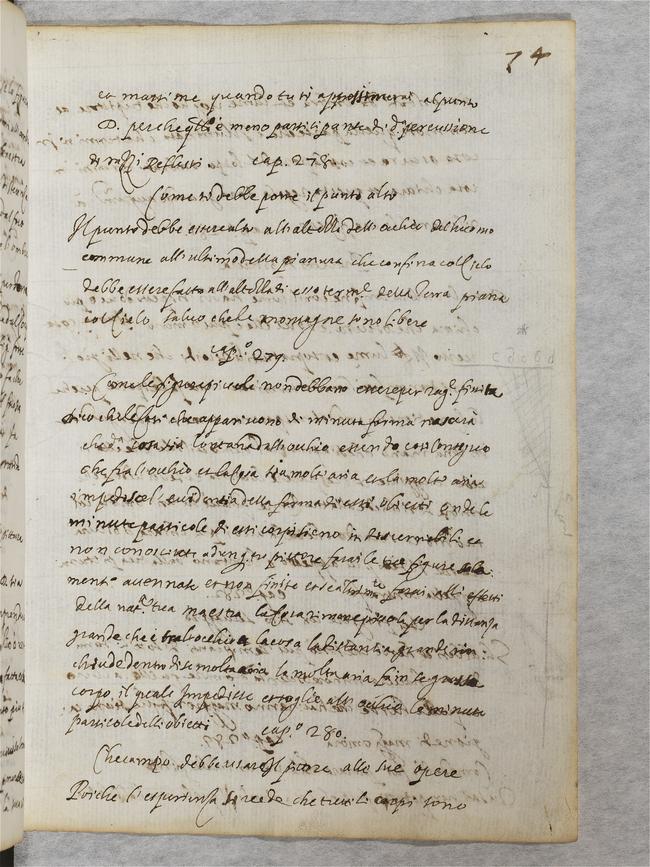 74
et massime quando tu ti apprssimerai al punto
D. perche gli è meno partisipante di da percussione
di razzi Reflessi. cap. 278
Come si debbe porre il punto alto
Il punto debbe essere alto all'altezza dell'occhio del huomo
commune all'ultimo della pianura che confina col Cielo
debbe essere fatto all'altezza di esso terme della Terra piana
col Cielo salvo che le montagne sono libere
cap.º 279
Come le figure picciole non debbano essere per rag.e finite
Dico che le cose che appariscono di minuta forma nascerà
che da cosa sia lontana dall'occhio essendo cosi Conviene
che fra l'occhio et la cosa sia molta aria et la molta aria
impedisce l'evidentia della forma di essi obietti onde le
minute particole di essi corpi sieno indiscernibili et
non conosciute adunq. tu pittore farai le figure sola
mente accennate et non finite et se altrimte farai alli effetti
della natra tua maestra. la cosa rimane piccola per la distanza
grande che è tra l'occhio et la cosa la distantia grande rin
chiude dentro di se molta aria la molta aria fa in se grosso
corpo il quale Impedisse et toglie all'occhio le minute
particole delli obietti cap.º 280.
Che campo debbe usare Il pittore alle sue opere
Poiche l'esperienza si vede che tutti li corpi sono